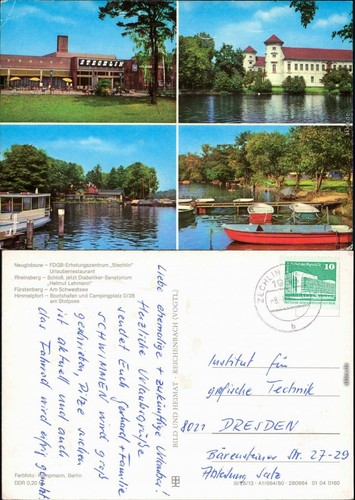 STECHLIN
Neuglobsow – FDGB-Erholungszentrum „Stechlin"
Urlauberrestaurant
Rheinsberg – Schloß, jetzt Diabetiker-Sanatorium
„Helmut Lehmann"
Fürstenberg – Am Schwedtsee
Himmelpfort – Bootshafen und Campingplatz D/28
am Stolpsee
Berlin
DDR 0,20
BILD UND HEIMAT · REICHENBACH (VOGTL)
Liebe ehemalige + zukünftige Urlauber!
Herzliche Urlaubsgrüße
sendet Euch Gerhard + Familie
SCHWIMMEN wird groß
geschrieben, Pilze suchen
ist aktuell und auch
das Fahrrad wird eifrig
10
b
Institut für
grafische Technik
8021 DRESDEN
Bärensteiner Str. 27-29
Abteilung Satz
280664 01 04 0160